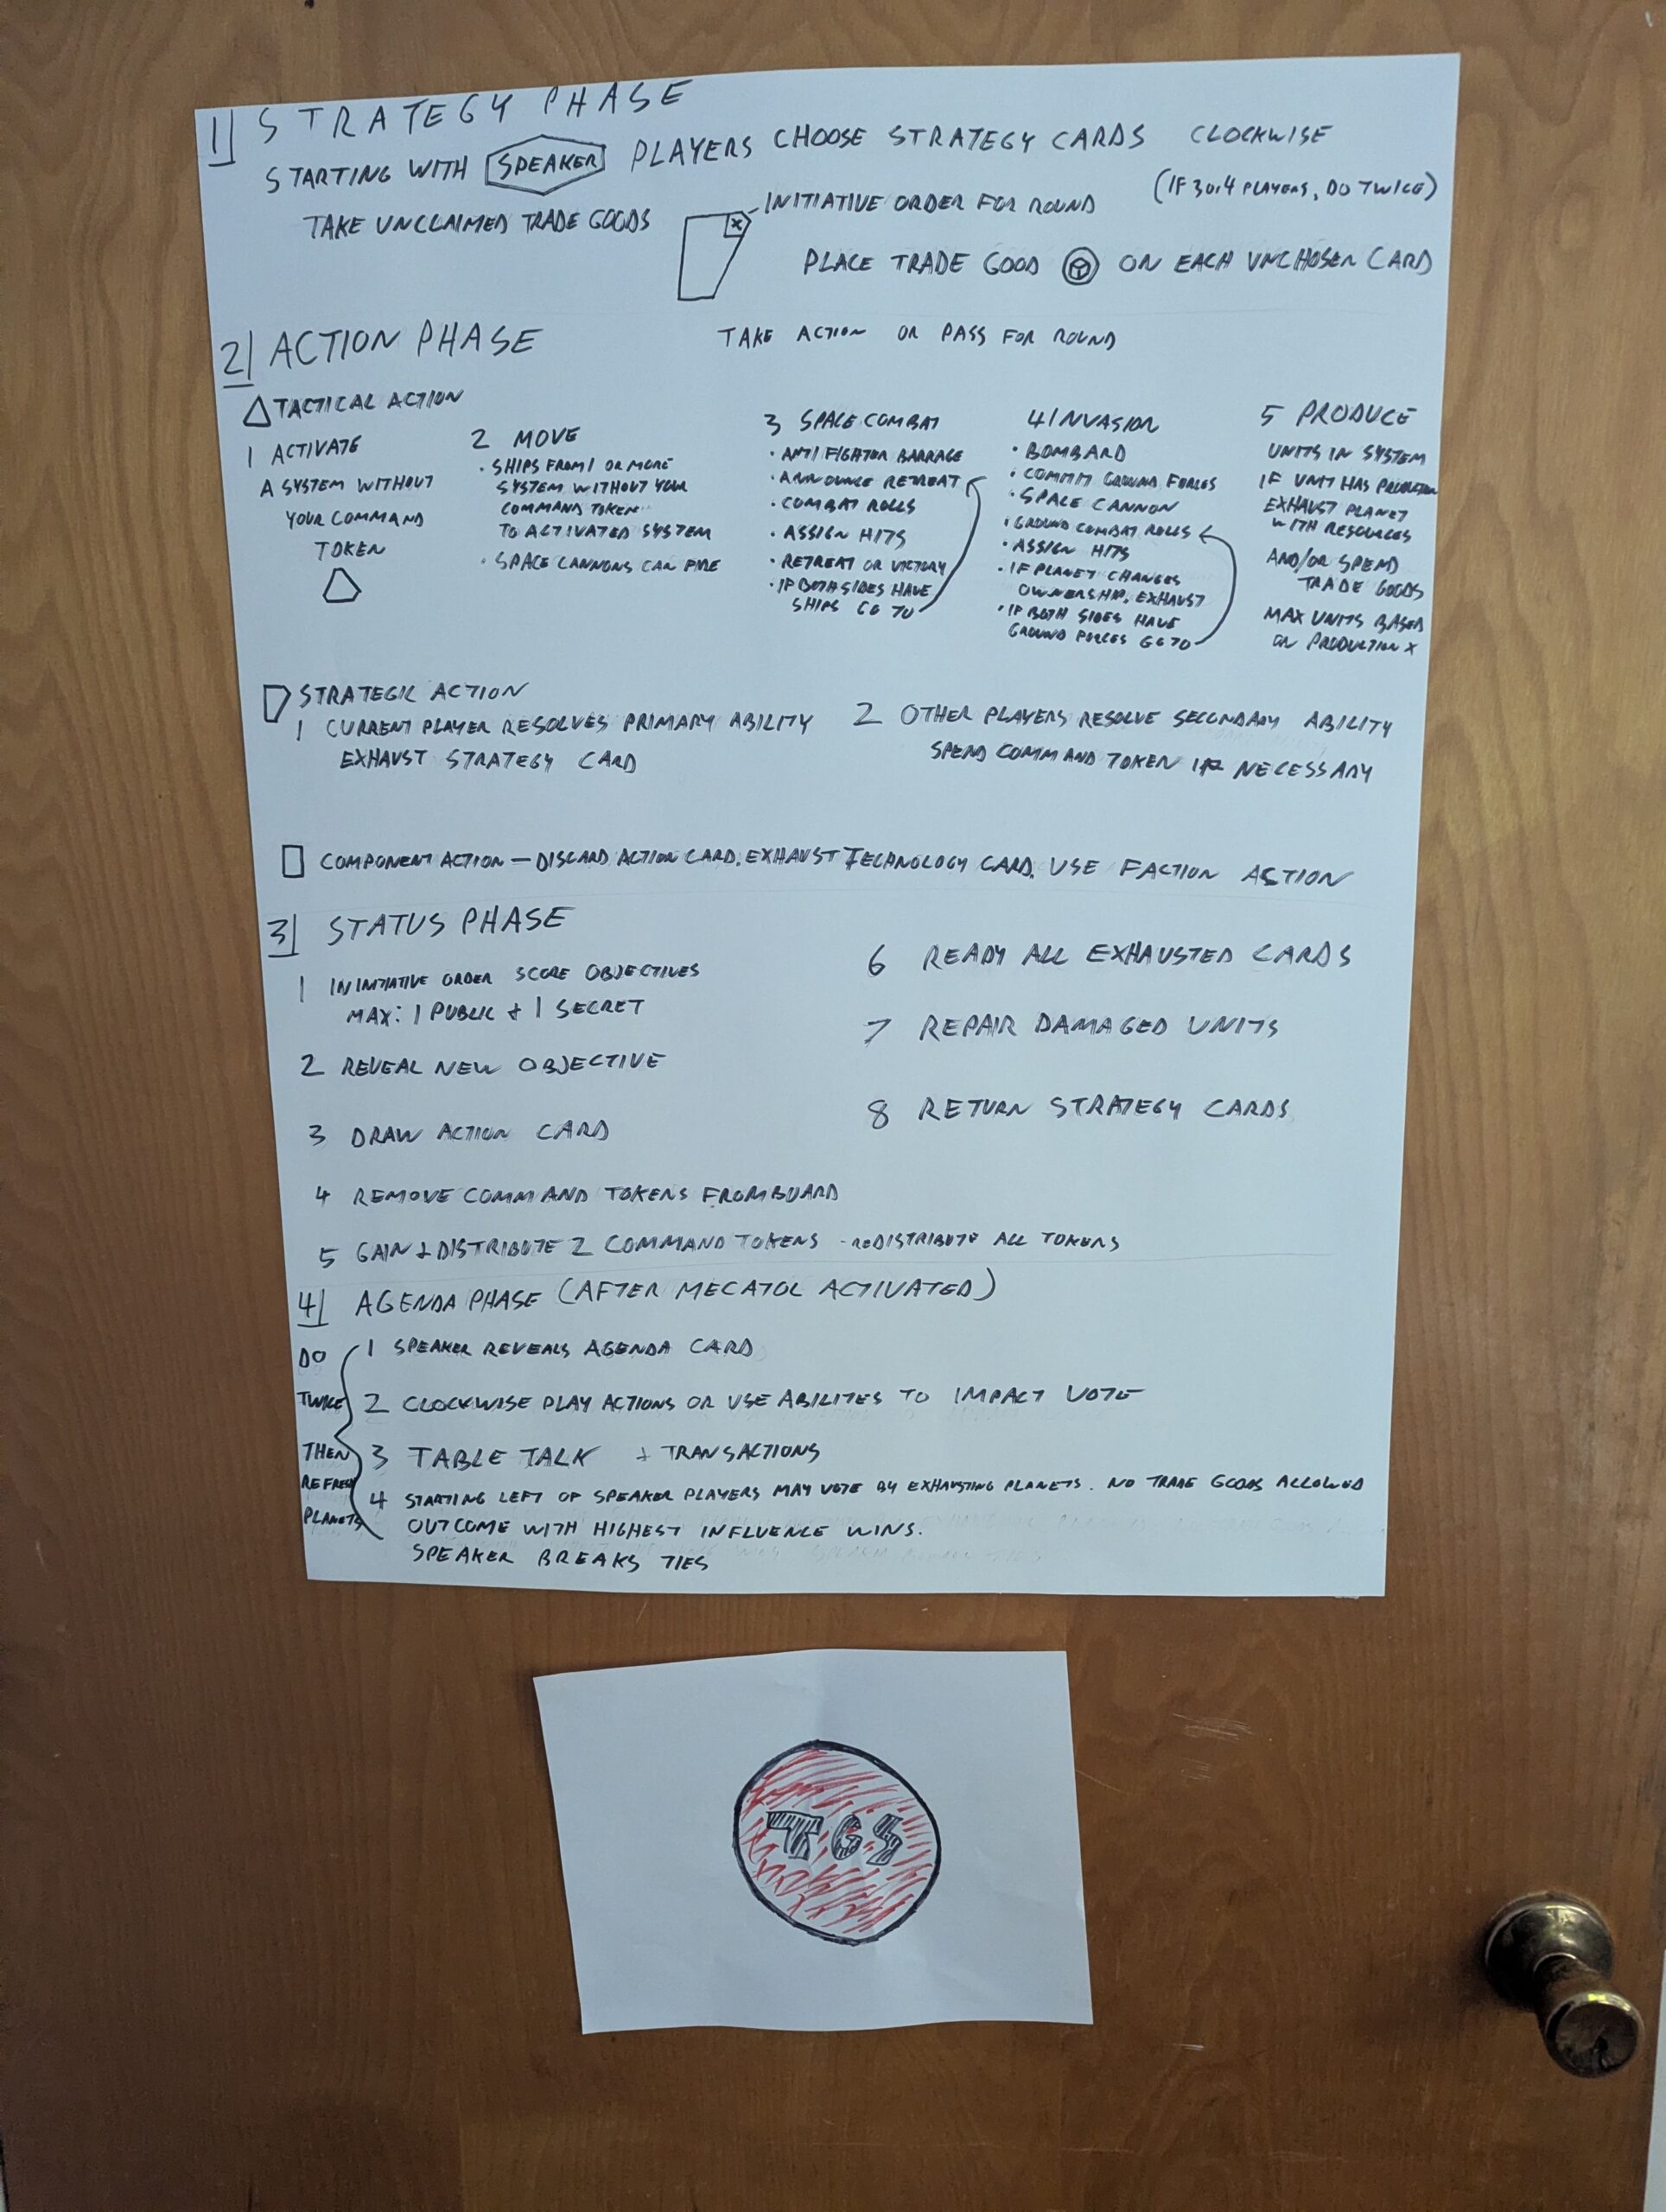 1| STRATEGY PHASE
STARTING WITH SPEAKER PLAYERS CHOOSE STRATEGY CARDS CLOCKWISE
(IF 3 or 4 PLAYERS, DO TWICE)
TAKE UNCLAIMED TRADE GOODS
X INITIATIVE ORDER FOR ROUND
PLACE TRADE GOOD ON EACH UNCHOSEN CARD
2| ACTION PHASE
TAKE ACTION OR PASS FOR ROUND
TACTICAL ACTION
1 ACTIVATE
A SYSTEM WITHOUT
YOUR COMMAND
TOKEN
2 MOVE
· SHIPS FROM 1 OR MORE
SYSTEM WITHOUT YOUR
COMMAND TOKEN
TO ACTIVATED SYSTEM
· SPACE CANNONS CAN FIRE
3 SPACE COMBAT
· ANTI FIGHTER BARRAGE
· ANNOUNCE RETREAT
· COMBAT ROLLS
· ASSIGN HITS
· RETREAT OR VICTORY
· IF BOTH SIDES HAVE
SHIPS GO TO
4 INVASION
· BOMBARD
· COMMIT GROUND FORCES
· SPACE CANNON
· GROUND COMBAT ROLLS
· ASSIGN HITS
· IF PLANET CHANGES
OWNERSHIP, EXHAUST
· IF BOTH SIDES HAVE
GROUND FORCES GO TO
5 PRODUCE
UNITS IN SYSTEM
IF UNIT HAS PRODUCTION
EXHAUST PLANET
WITH RESOURCES
AND/OR SPEND
TRADE GOODS
MAX UNITS BASED
ON PRODUCTION X
STRATEGIC ACTION
1 CURRENT PLAYER RESOLVES PRIMARY ABILITY
EXHAUST STRATEGY CARD
2 OTHER PLAYERS RESOLVE SECONDARY ABILITY
SPEND COMMAND TOKEN IF NECESSARY
COMPONENT ACTION — DISCARD ACTION CARD, EXHAUST TECHNOLOGY CARD, USE FACTION ACTION
3| STATUS PHASE
1 IN INITIATIVE ORDER SCORE OBJECTIVES
MAX: 1 PUBLIC + 1 SECRET
2 REVEAL NEW OBJECTIVE
3 DRAW ACTION CARD
4 REMOVE COMMAND TOKENS FROM BOARD
5 GAIN + DISTRIBUTE 2 COMMAND TOKENS - REDISTRIBUTE ALL TOKENS
6 READY ALL EXHAUSTED CARDS
7 REPAIR DAMAGED UNITS
8 RETURN STRATEGY CARDS
4| AGENDA PHASE (AFTER MECATOL ACTIVATED)
DO
TWICE
THEN
REFRESH
PLANETS
1 SPEAKER REVEALS AGENDA CARD
2 CLOCKWISE PLAY ACTIONS OR USE ABILITES TO IMPACT VOTE
3 TABLE TALK + TRANSACTIONS
4 STARTING LEFT OF SPEAKER PLAYERS MAY VOTE BY EXHAUSTING PLANETS. NO TRADE GOODS ALLOWED
OUTCOME WITH HIGHEST INFLUENCE WINS.
SPEAKER BREAKS TIES
TGS